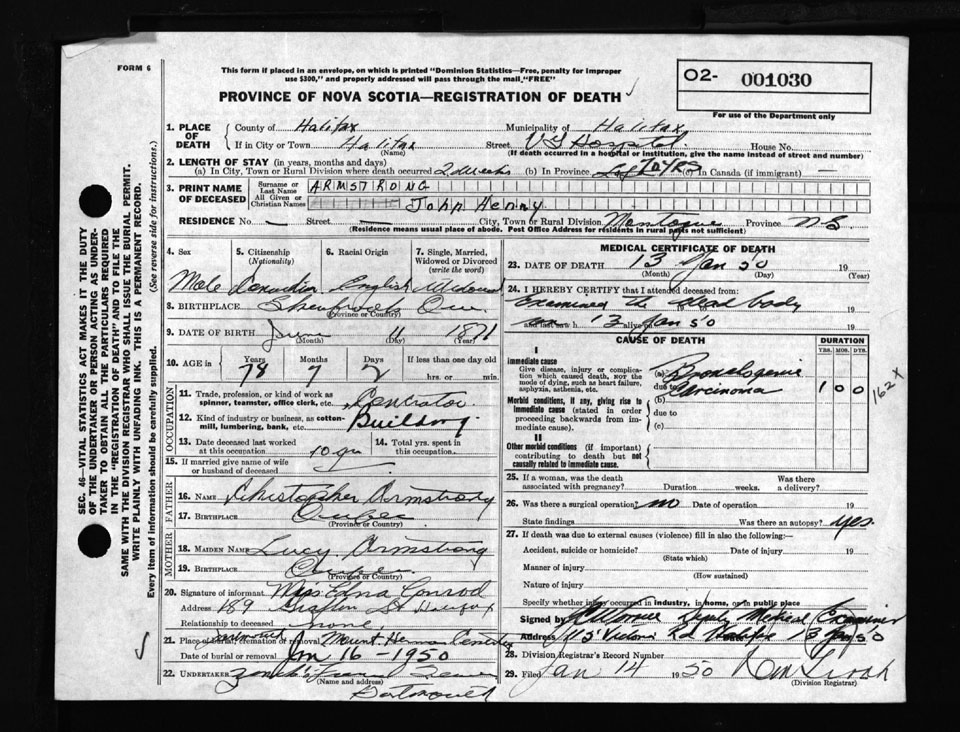 FORM 6
This form if placed in an envelope, on which is printed "Dominion Statistics—Free, penalty for improper
use $300," and properly addressed will pass through the mail, "FREE"
O2- 001030
PROVINCE OF NOVA SCOTIA—REGISTRATION OF DEATH
For use of the Department only
SEC. 46—VITAL STATISTICS ACT MAKES IT THE DUTY
OF THE UNDERTAKER OR PERSON ACTING AS UNDER-
TAKER TO OBTAIN ALL THE PARTICULARS REQUIRED
IN THE "REGISTRATION OF DEATH" AND TO FILE THE
SAME WITH THE DIVISION REGISTRAR WHO SHALL ISSUE THE BURIAL PERMIT.
WRITE PLAINLY WITH UNFADING INK. THIS IS A PERMANENT RECORD.
Every item of information should be carefully supplied. (See reverse side for instructions.)
1. PLACE OF DEATH County of Halifax Municipality of Halifax
If in City or Town Halifax (Name) Street V G Hospital House No.
(If death occurred in a hospital or institution, give the name instead of street and number)
2. LENGTH OF STAY (in years, months and days)
(a) In City, Town or Rural Division where death occurred 2 weeks (b) In Province YRS (c) In Canada (if immigrant) —
3. PRINT NAME OF DECEASED Surname or Last Name ARMSTRONG
All Given or Christian Names John Henry
RESIDENCE No. — Street — City, Town or Rural Division Province N-S.
(Residence means usual place of abode. Post Office Address for residents in rural parts not sufficient)
4. Sex 5. Citizenship (Nationality) 6. Racial Origin 7. Single, Married, Widowed or Divorced (write the word)
Male Canadian English Widowed
8. BIRTHPLACE Que. (Province or Country)
9. DATE OF BIRTH June 11 1871
(Month) (Day) (Year)
10. AGE in Years Months Days If less than one day old
78 7 2 hrs. or min.
OCCUPATION
11. Trade, profession, or kind of work as spinner, teamster, office clerk, etc.
12. Kind of industry or business, as cotton-mill, lumbering, bank, etc. Building
13. Date deceased last worked at this occupation 10 14. Total yrs. spent in this occupation.
15. If married give name of wife or husband of deceased
FATHER
16. Name Christopher Armstrong
17. Birthplace Quebec (Province or Country)
MOTHER
18. Maiden Name Lucy Armstrong
19. Birthplace Quebec (Province or Country)
20. Signature of informant Miss Edna Conrod
Address 189 Grafton St Halifax
Relationship to deceased none
21. Place of burial, cremation or removal Dartmouth Mount Hermon Cemetery
Date of burial or removal Jan 16 - 1950
22. UNDERTAKER Funeral
(Name and address) Dartmouth
MEDICAL CERTIFICATE OF DEATH
23. DATE OF DEATH 13 Jan 50 19
(Month) (Day) (Year)
24. I HEREBY CERTIFY that I attended deceased from:
Examined the dead body 19
and last saw h alive on 13 Jan 50 19
CAUSE OF DEATH DURATION
YRS. MOS. DYS.
I
Immediate cause
Give disease, injury or complication which caused death, not the mode of dying, such as heart failure, asphyxia, asthenia, etc.
(a) Bronchogenic
due to Carcinoma 1 0 0
162 x
Morbid conditions, if any, giving rise to immediate cause (stated in order proceeding backwards from immediate cause).
(b)
due to
(c)
II
Other morbid conditions (if important) contributing to death but not causally related to immediate cause.
25. If a woman, was the death associated with pregnancy? Duration weeks. Was there a delivery?
26. Was there a surgical operation? no Date of operation 19
State findings Was there an autopsy? yes.
27. If death was due to external causes (violence) fill in also the following:—
Accident, suicide or homicide? (State which) Date of injury 19
Manner of injury (How sustained)
Nature of injury
Specify whether injury occurred in industry, in home, or in public place
Signed by Deputy Medical Examiner
Address Victoria Rd Halifax 13 Jan 50
28. Division Registrar's Record Number
29. Filed Jan 14 1950
(Division Registrar)